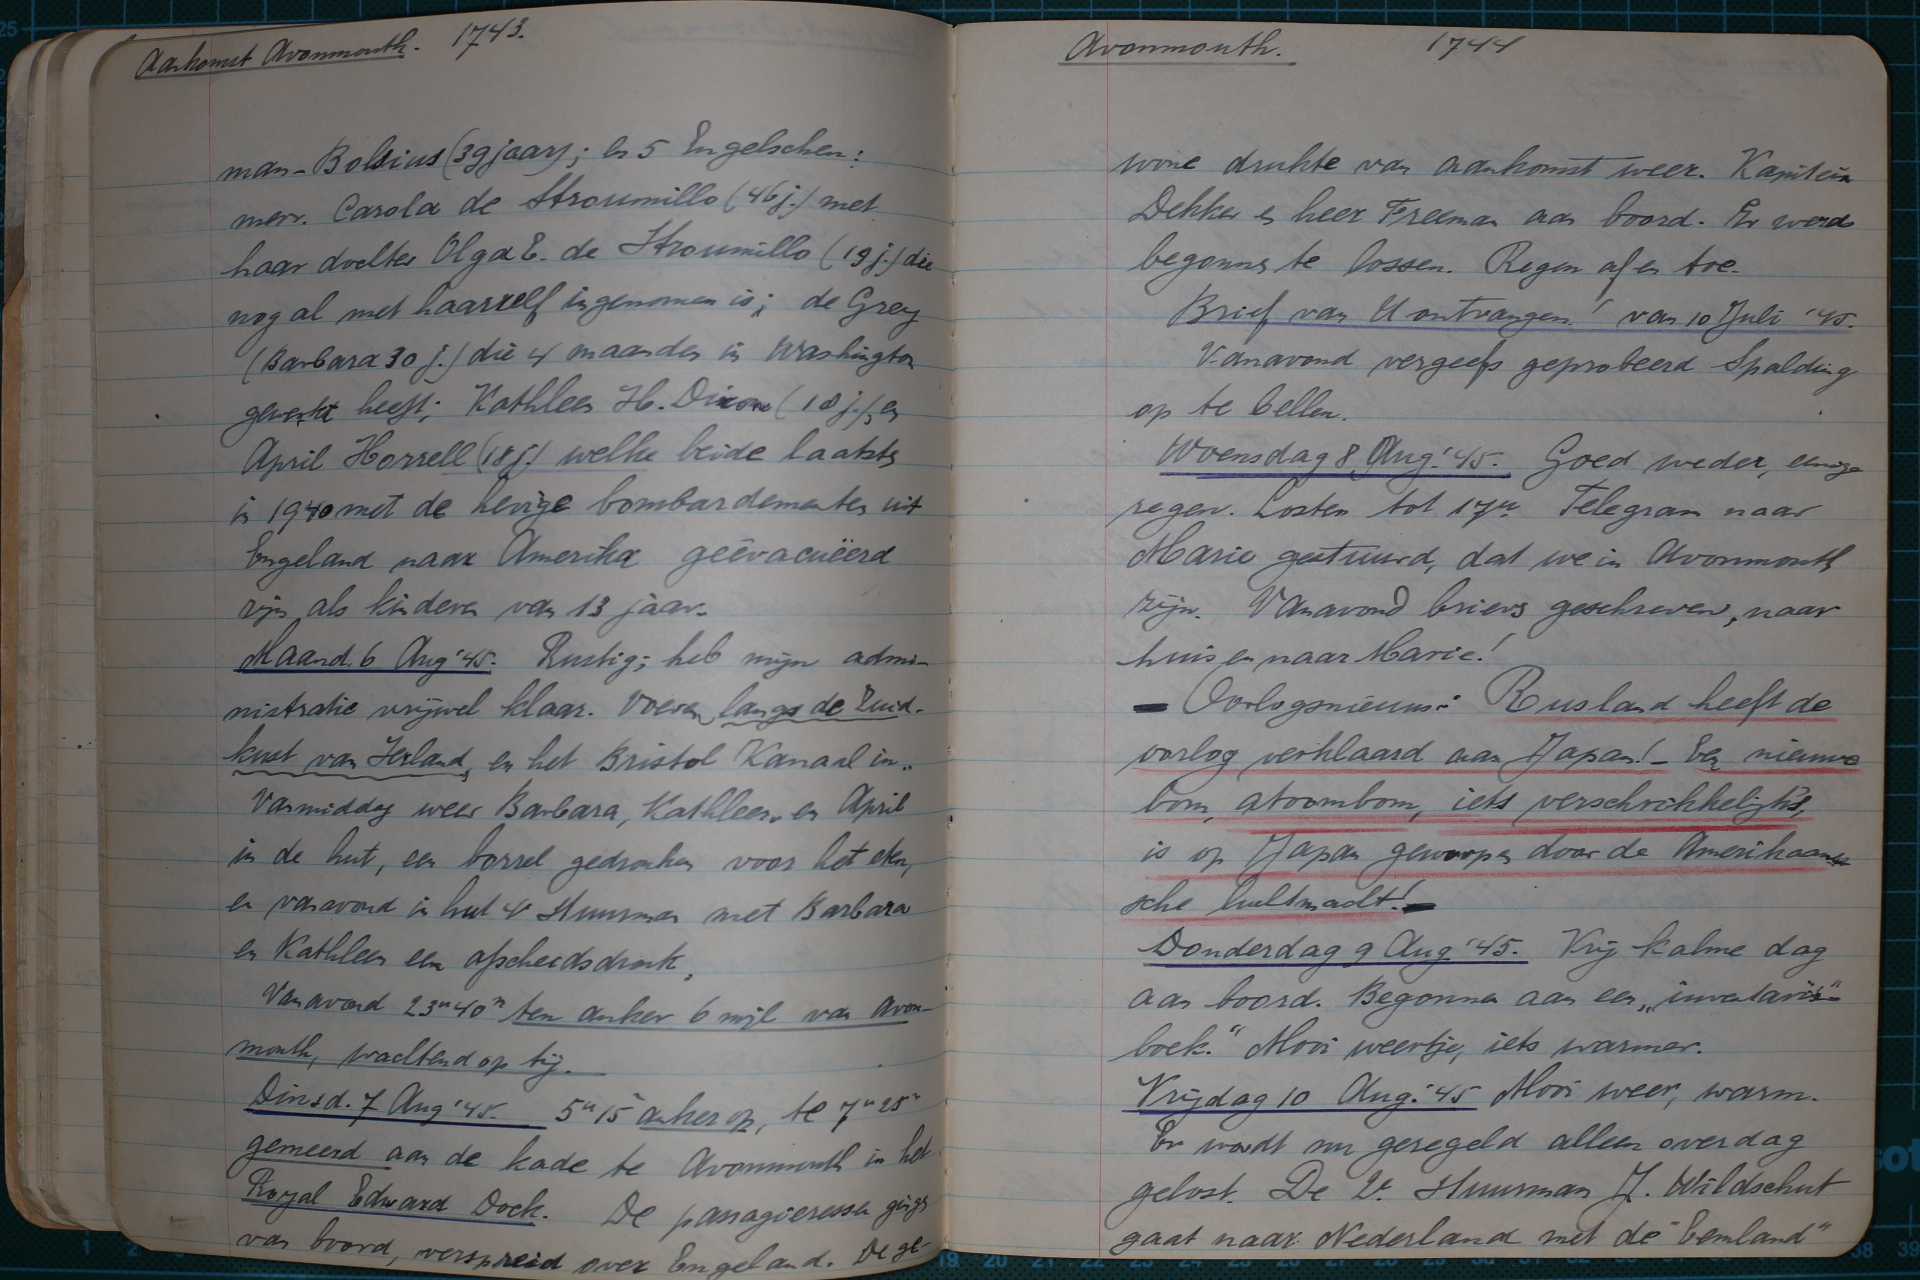 Aankomst Avonmouth. 1743.
man-Bolsius (39 jaar); en 5 Engelschen:
mevr. Carola de Stroumillo (46 j.) met
haar dochter Olga E. de Stroumillo (19 j.) die
nog al met haarzelf ingenomen is; de Grey
(Barbara 30 j.) die 4 maanden in Washington
gewerkt heeft; Kathleen H. Dixon (18 j.), en
April Horrell (18 j.) welke beide laatste
in 1940 met de hevige bombardementen uit
Engeland naar Amerika geëvacuëerd
zijn als kinderen van 13 jaar.
Maand. 6 Aug '45. Rustig; heb mijn admi-
nistratie vrijwel klaar. Voeren langs de Zuid-
kust van Ierland, en het Bristol Kanaal in.
Vanmiddag weer Barbara, Kathleen, en April
in de hut, een borrel gedronken voor het eten,
en vanavond in hut 4e Stuurman met Barbara
en Kathleen een afscheidsdronk.
Vanavond 23u 40m ten anker 6 mijl van Avon-
mouth, wachtend op tij.
Dinsd. 7 Aug '45. 5u 15 anker op, te 7u 25m
gemeerd aan de kade te Avonmouth in het
Royal Edward Dock. De passagieressen gingen
van boord, verspreid over Engeland. De ge-
Avonmouth. 1744
wone drukte van aankomst weer. Kapitein
Dekker en heer Freeman aan boord. Er werd
begonnen te lossen. Regen af en toe.
Brief van U ontvangen! van 10 Juli '45.
Vanavond vergeefs geprobeerd Spalding
op te bellen.
Woensdag 8 Aug. '45. Goed weder, eenige
regen. Losten tot 17u. Telegram naar
Marie gestuurd, dat we in Avonmouth
zijn. Vanavond brieven geschreven, naar
huis en naar Marie!
— Oorlogsnieuws: Rusland heeft de
oorlog verklaard aan Japan! - Een nieuwe
bom, atoombom, iets verschrikkelijks,
is op Japan geworpen door de Amerikaan-
sche luchtmacht! —
Donderdag 9 Aug. '45. Vrij kalme dag
aan boord. Begonnen aan een „inventaris-
boek.“ Mooi weertje, iets warmer.
Vrijdag 10 Aug. '45 Mooi weer, warm.
Er wordt nu geregeld alleen overdag
gelost. De 2e Stuurman J. Wildschut
gaat naar Nederland met de "Eemland"